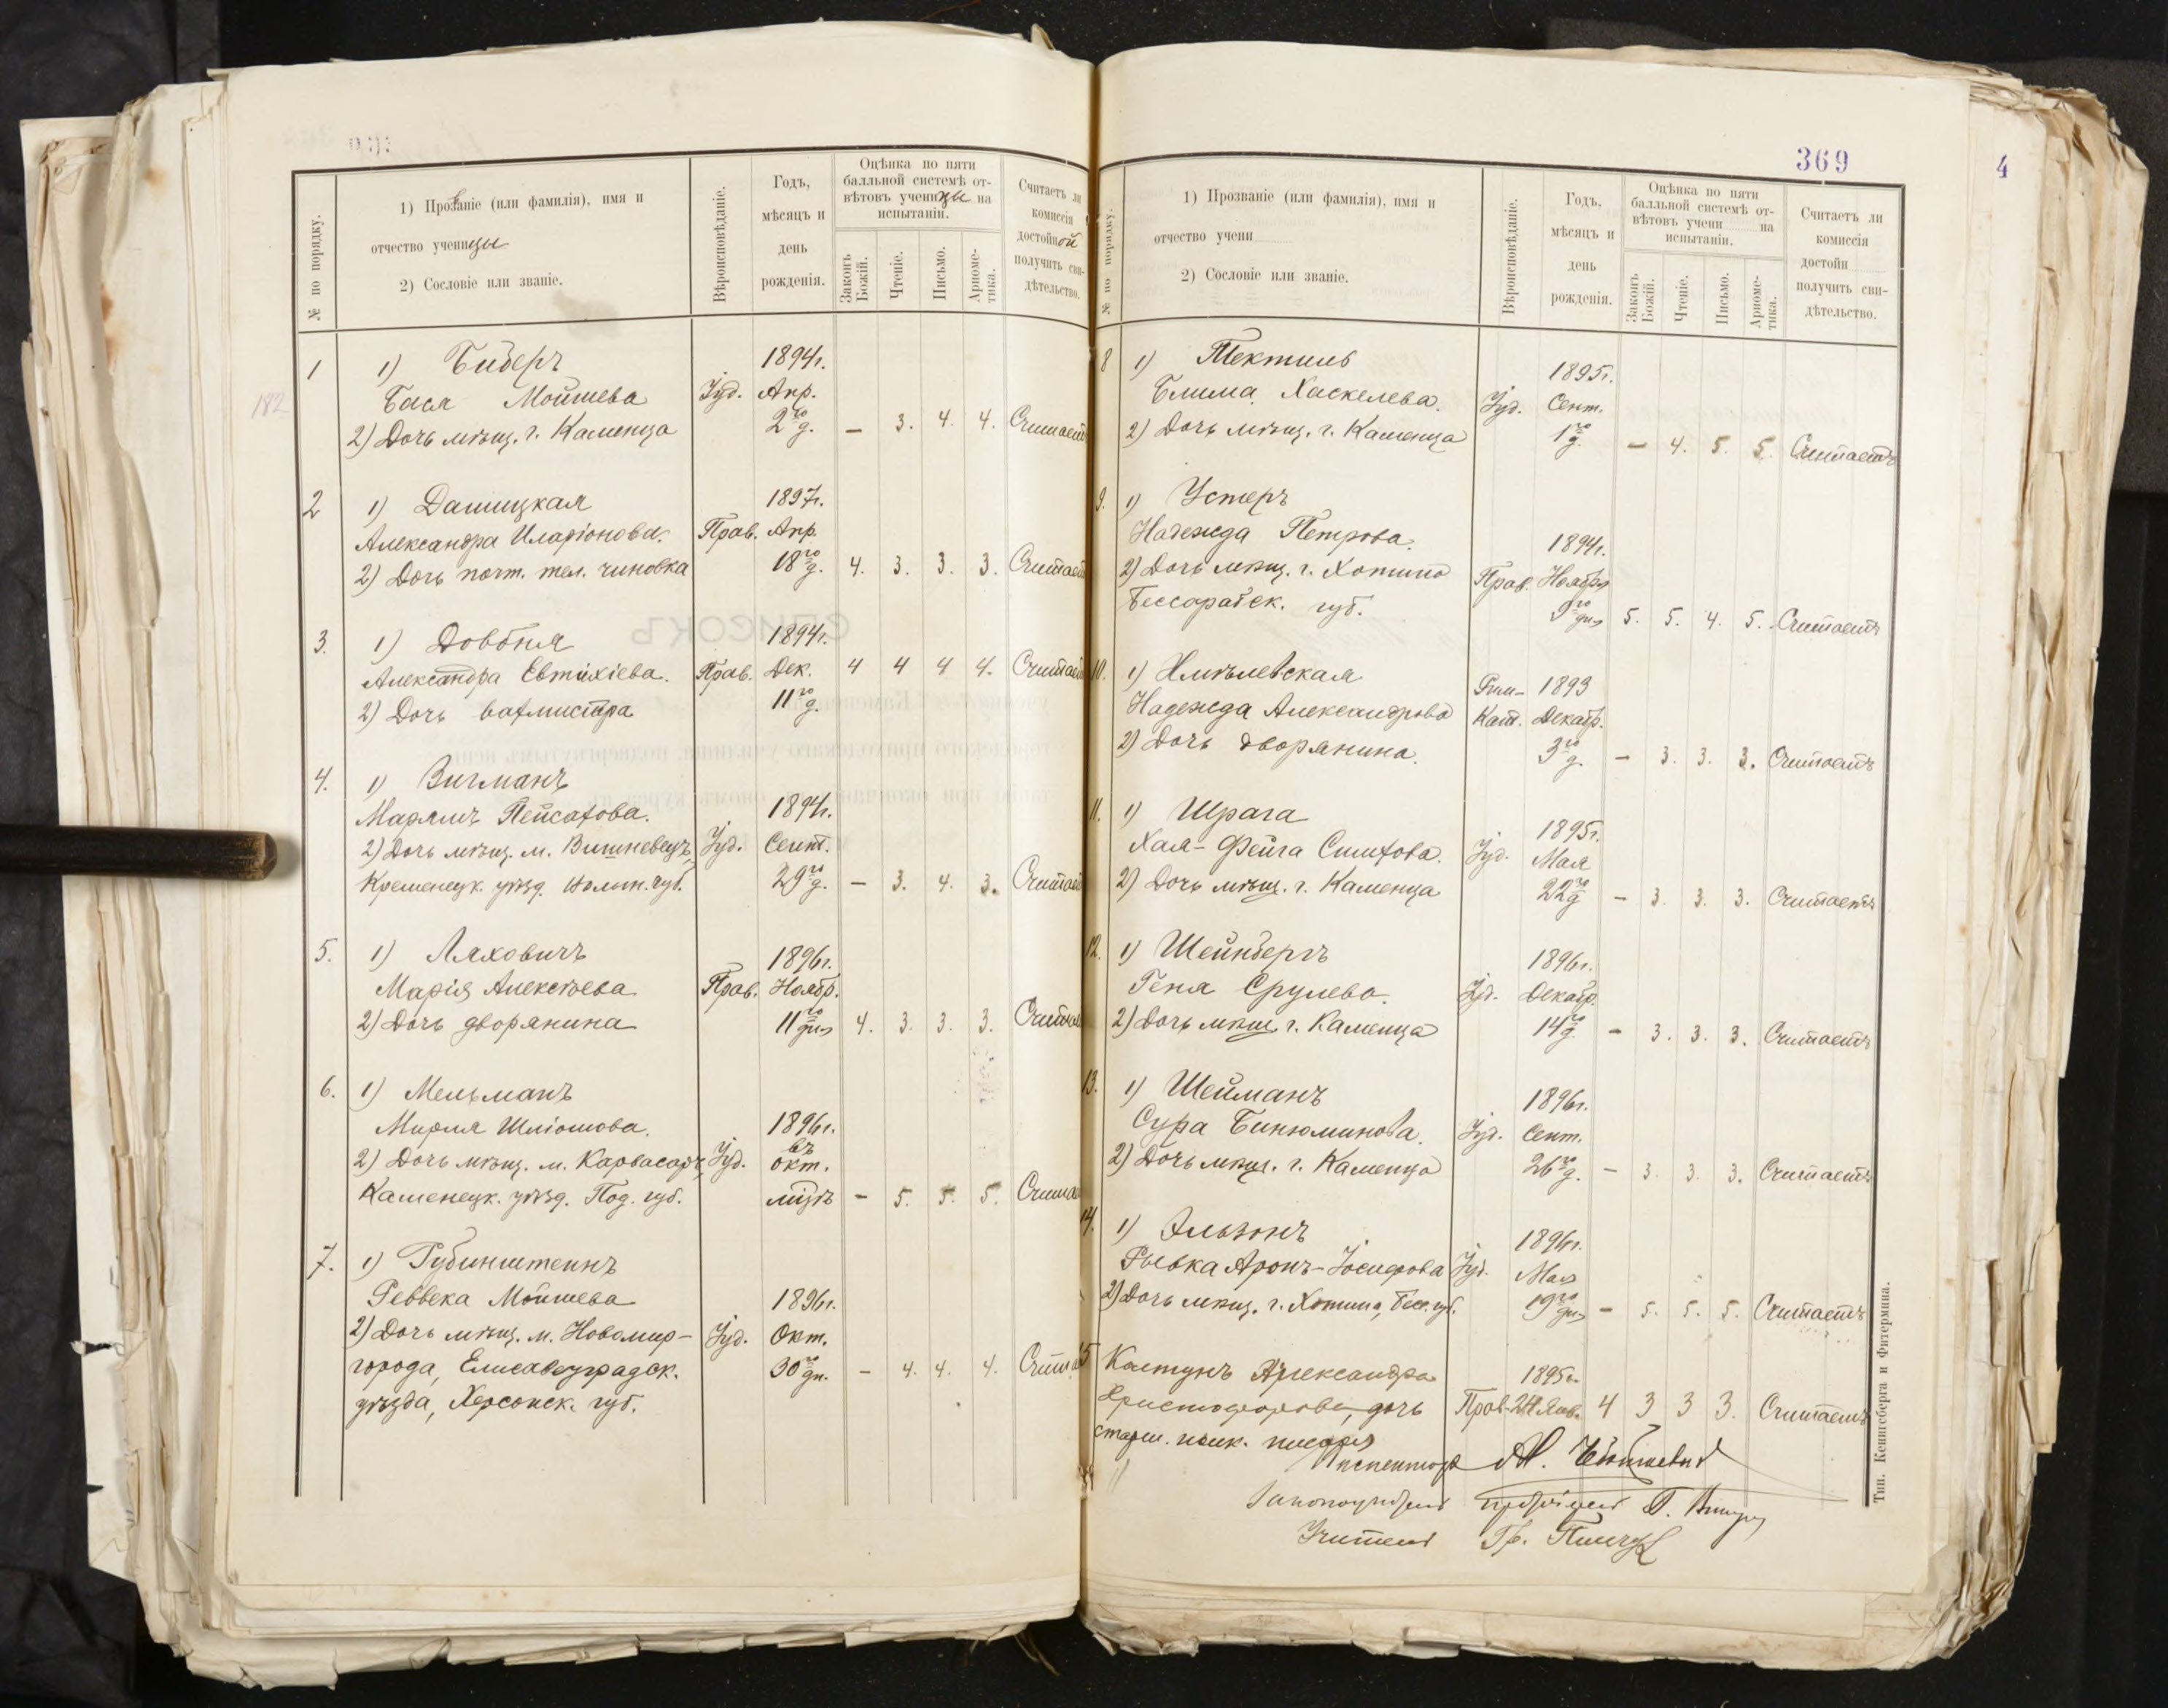 369
4
№ по порядку.
1) Прозваніе (или фамилія), имя и
отчество ученицы
2) Сословіе или званіе.
Вѣроисповѣданіе.
Годъ,
мѣсяцъ и
день
рожденія.
Оцѣнка по пяти
балльной системѣ от-
вѣтовъ ученицы на
испытаніи.
Законъ
Божій.
Чтеніе.
Письмо.
Ариѳме-
тика.
Считаетъ ли
комиссія
достойной
получить сви-
дѣтельство.
182
1 1) Биберъ 1894г.
Бася Мойшева Іуд. Апр.
2) Дочь мѣщ. г. Каменца 2го д. — 3. 4. 4. Считаетъ
2 1) Дашицкая 1897г.
Александра Иларіонова. Прав. Апр.
2) Дочь почт. тел. чиновка 18го д. 4. 3. 3. 3. Считает
3. 1) Довбня 1894г.
Александра Евтихіева. Прав. Дек. 4 4 4 4. Считает
2) Дочь вахмистра 11го д.
4. 1) Зигманъ
Марямъ Пейсахова. 1894г.
2) Дочь мѣщ. м. Вишневецъ, Іуд. Сент.
Кременецк. уѣзд. Волын. губ. 29го д. — 3. 4. 3. Считает
5. 1) Ляховичъ 1896г.
Марія Алексѣева Прав. Ноябр.
2) Дочь дворянина 11го дня 4. 3. 3. 3. Считает
6. 1) Мельманъ
Мирля Шліомова. 1896г.
въ
2) Дочь мѣщ. м. Карвасаръ, Іуд. окт.
Каменецк. уѣзд. Под. губ. мцѣ — 5. 5. 5. Счита
7. 1) Рубинштейнъ
Реввека Мойшева 1896г.
2) Дочь мѣщ. м. Новомир- Іуд. Окт.
города, Елисаветградск. 30го дн. — 4. 4. 4. Счита
уѣзда, Херсонск. губ.
№ по порядку.
1) Прозваніе (или фамилія), имя и
отчество учени
2) Сословіе или званіе.
Вѣроисповѣданіе.
Годъ,
мѣсяцъ и
день
рожденія.
Оцѣнка по пяти
балльной системѣ от-
вѣтовъ учени на
испытаніи.
Законъ
Божій.
Чтеніе.
Письмо.
Ариѳме-
тика.
Считаетъ ли
комиссія
достойн
получить сви-
дѣтельство.
8 1) Тектиль 1895г.
Блима Хаскелева. Іуд. Сент.
2) Дочь мѣщ. г. Каменца 1го д. — 4. 5. 5. Считаетъ
9. 1) Устеръ
Надежда Петрова. 1894г.
2) Дочь мѣщ. г. Хотина Прав. Ноября
Бессарабск. губ. 9го дня 5. 5. 4. 5. Считаетъ
10. 1) Хмѣлевская Рим- 1893
Надежда Александрова Кат. Декабр.
2) Дочь дворянина. 3го д. — 3. 3. 3. Считаетъ
11. 1) Шрага 1895г.
Хая-Фейга Симхова. Іуд. Мая
2) Дочь мѣщ. г. Каменца 22го д — 3. 3. 3. Считаетъ
12. 1) Шейнбергъ 1896г.
Геня Срулева. Іуд. Декабр.
2) Дочь мѣщ. г. Каменца 14го д. — 3. 3. 3. Считаетъ
13. 1) Шейманъ 1896г.
Сура Бинюминова. Іуд. Сент.
2) Дочь мѣщ. г. Каменца 26го д. — 3. 3. 3. Считаетъ
14. 1) Эльзонъ 1896г.
Рывка Аронъ-Іосифова Іуд. Мая
2) Дочь мѣщ. г. Хотина, Бесс. губ. 19го дня — 5. 5. 5. Считаетъ
15 Калтунъ Александра 1895г.
Христофорова, дочь Прав. 24 Янв. 4 3 3 3. Считаетъ
старш. писаря
Инспекторъ
Законоучитель
Учитель Гр.
Тип. Кенисберга и Фитермина.